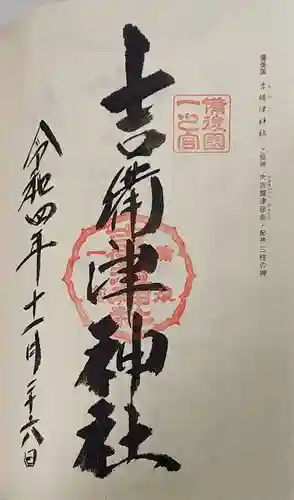 備後国 吉備津神社 ご祭神・大吉備津彦命・配神 三柱の神
備後國
一之宮
吉備津神社
令和四年十一月二十六日